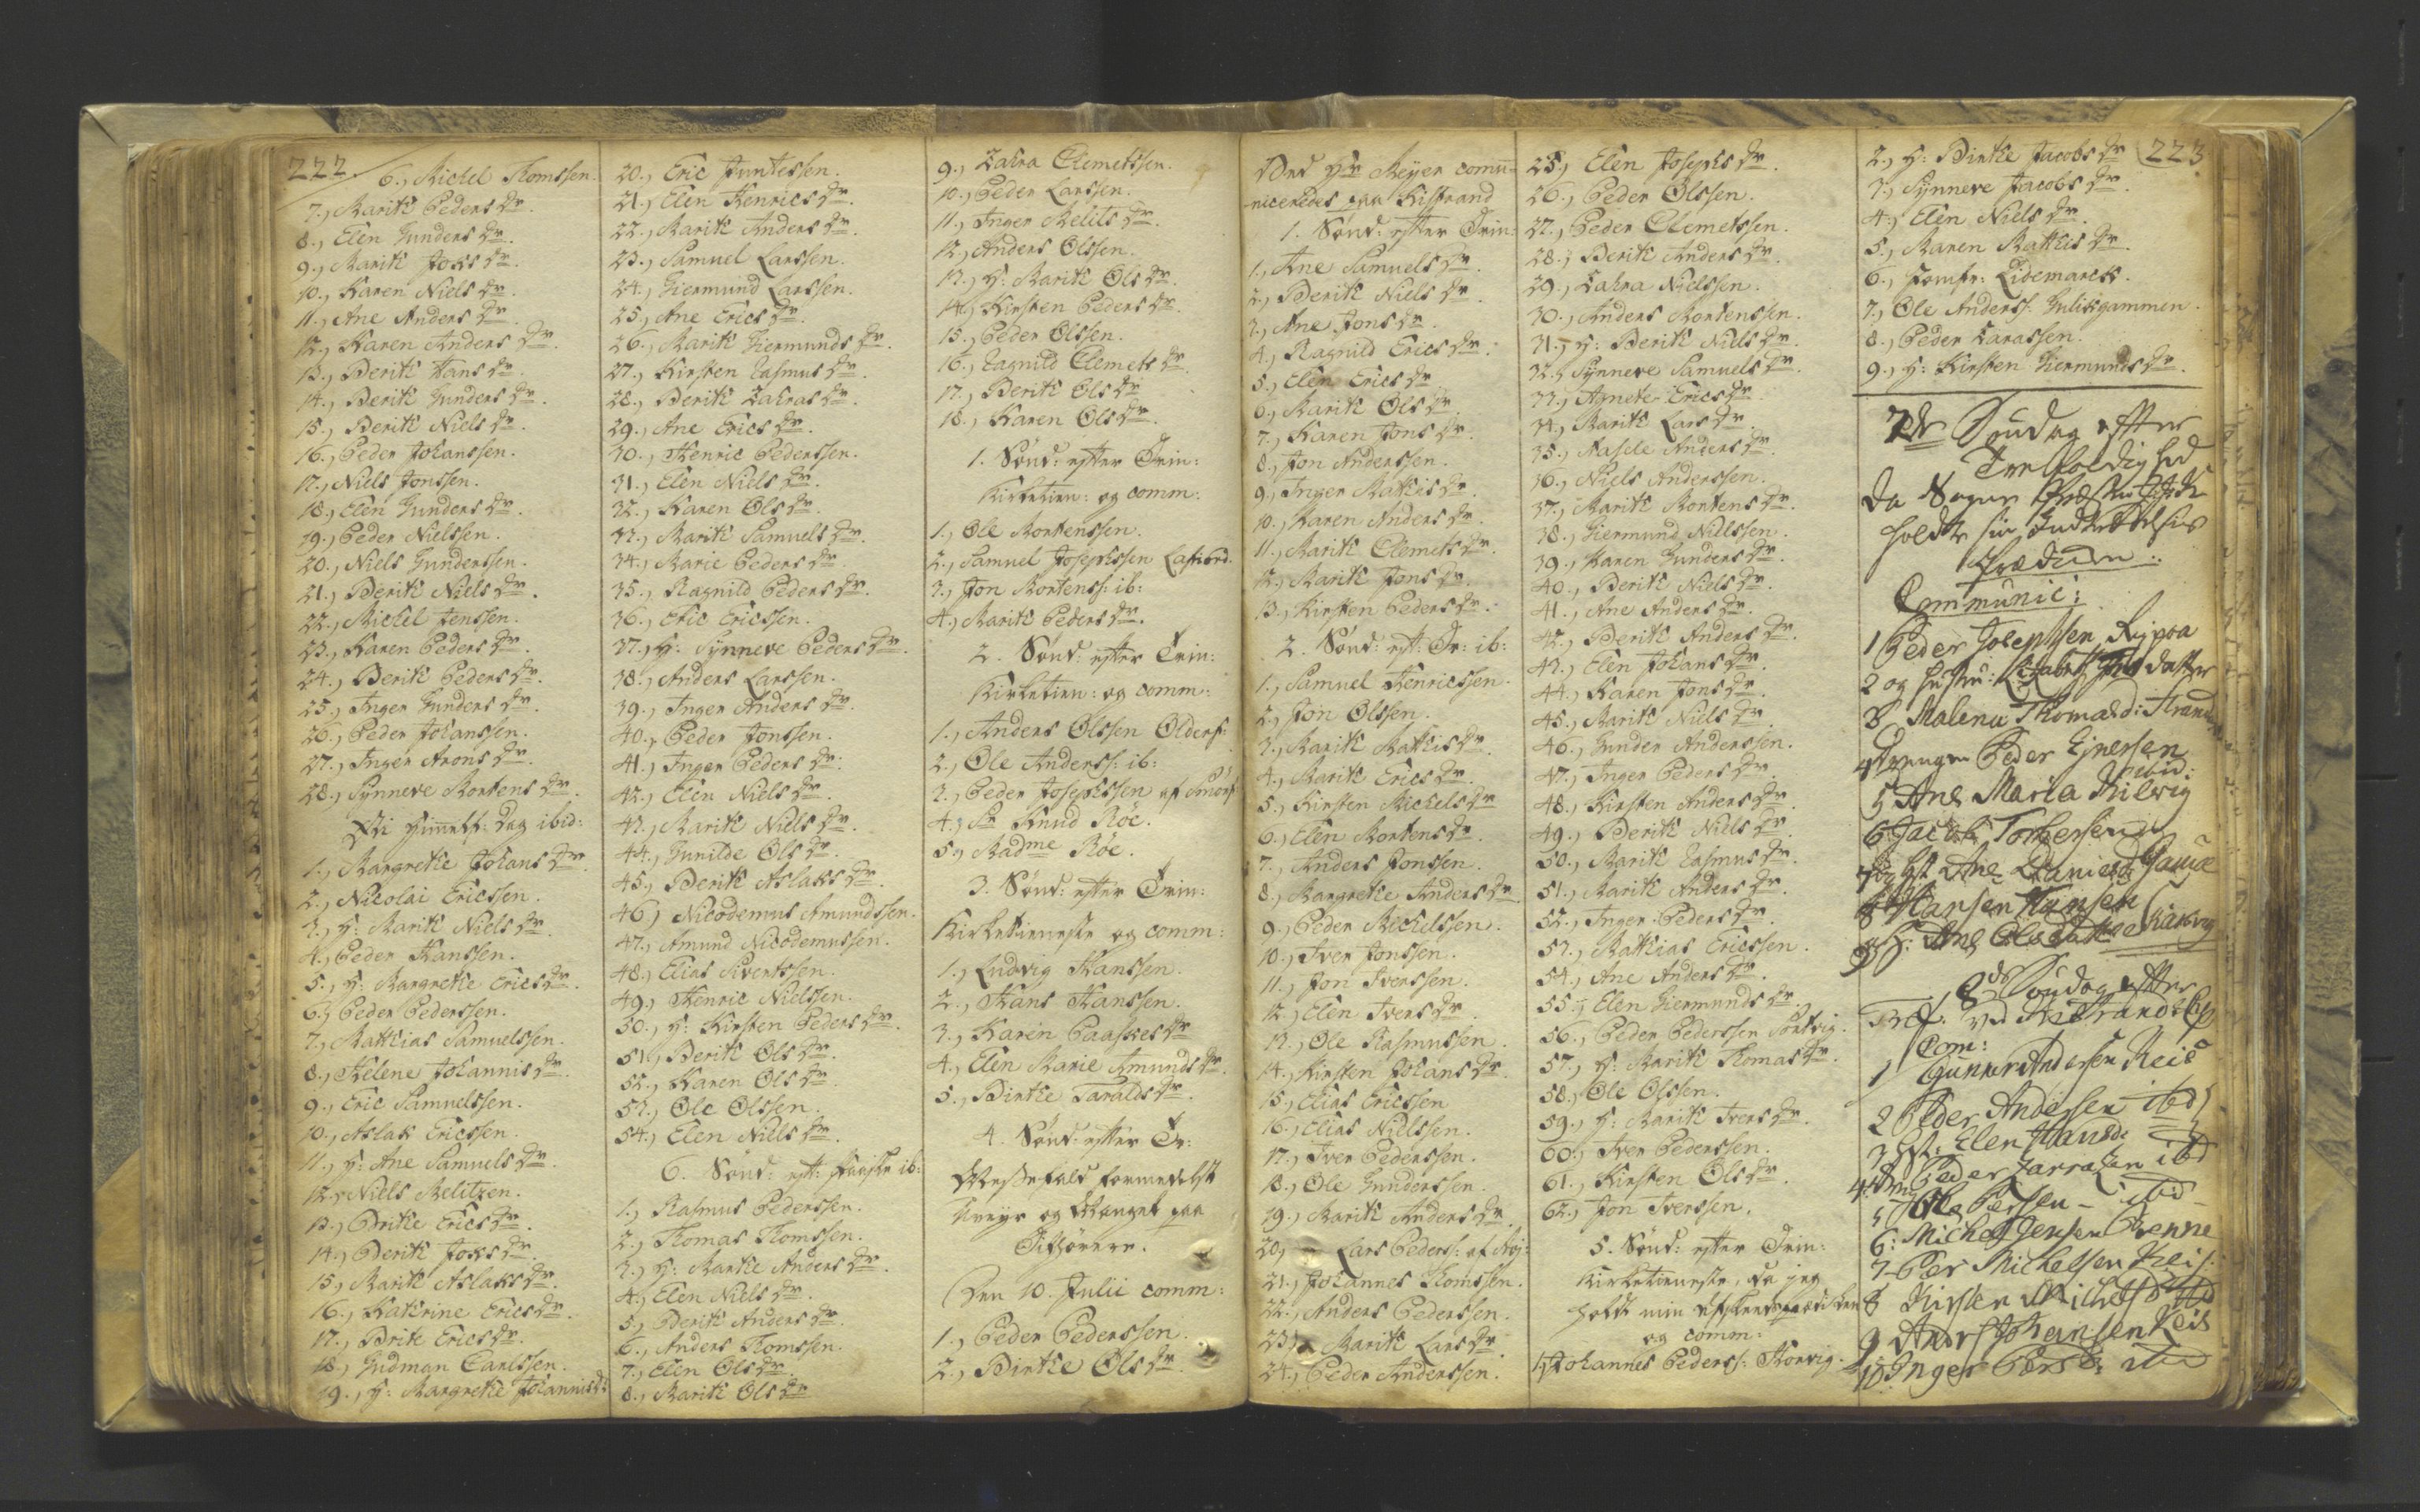 222.
6., Michel Thomssen.
7., Marith Peders dr.
8., Elen Gunders dr.
9., Marith Jons dr.
10., Karen Niels dr.
11., Ane Anders dr.
12., Karen Anders dr.
13., Berith Hans dr.
14., Berith Gunders dr.
15., Berith Niels dr.
16., Peder Johanssen.
17., Niels Jonssen.
18., Elen Gunders dr.
19., Peder Nielssen.
20., Niels Gunderssen.
21., Berith Niels dr.
22., Michel Jenssen.
23., Karen Peders dr.
24., Berith Peders dr.
25., Inger Gunders dr.
26., Peder Johanssen.
27., Inger Arons dr.
28., Synneve Mortens dr.
Chri Himelf: Dag ibid:
1., Margrethe Johans dr.
2., Nicolai Ericssen.
3., H: Marith Niels dr.
4., Peder Hanssen.
5., H: Margrethe Erics dr.
6., Peder Pederssen.
7., Matthias Samuelssen.
8., Helene Johannis dr.
9., Eric Samuelssen.
10., Aslak Ericssen.
11., H: Ane Samuels dr.
12., Niels Melitzen.
13., Brithe Erics dr.
14., Berith Jons dr.
15., Marith Aslaks dr.
16., Kathrine Erics dr.
17., Brite Erics dr.
18., Gudman Carlssen.
19., H: Margrethe Johannis dr.
20., Eric
21., Elen Henrics dr.
22., Marith Anders dr.
23., Samuel Larssen.
24., Giermund Larssen.
25., Ane Erics dr.
26., Marith Giermunds dr.
27., Kirsten Rasmus dr.
28., Berith Zahras dr.
29., Ane Erics dr.
30., Henric Pederssen.
31., Elen Niels dr.
32., Karen Ols dr.
33., Marith Samuels dr.
34., Marie Peders dr.
35., Ragnild Peders dr.
36., Eric Ericssen.
37., H: Synneve Peders dr.
38., Anders Larssen.
39., Inger Anders dr.
40., Peder Jonssen.
41., Inger Peders dr.
42., Elen Niels dr.
43., Marith Niels dr.
44., Gunilde Ols dr.
45., Berith Aslaks dr.
46., Nicodemus Amundssen.
47., Amund Nicodemussen.
48., Elias Sivertssen.
49., Henric Nielssen.
50., H: Kirsten Peders dr.
51., Berith Ols dr.
52., Karen Ols dr.
53., Ole Olssen.
54., Elen Niels dr.
6. Sønd: eft: Paaske ib:
1., Rasmus Pederssen.
2., Thomas Thomssen.
3., H: Marthe Anders dr.
4., Elen Niels dr.
5., Berith Anders dr.
6., Anders Thomssen.
7., Elen Ols dr.
8., Marith Ols dr.
9., Zahra Clemetssen.
10., Peder Larssen.
11., Inger Melits dr.
12., Anders Olssen.
13., H: Marith Ols dr.
14., Kirsten Peders dr.
15., Peder Olssen.
16., Ragnild Clemets dr.
17., Berith Ols dr.
18., Karen Ols dr.
1. Sønd: efter Trin:
Kirketien: og comm:
1., Ole Mortenssen.
2., Samuel Josephssen
3., Jon Mortenss: ib:
4., Marith Peders dr.
2. Sønd: efter Trin:
Kirketien: og comm:
1., Anders Olssen Oldersf:
2., Ole Anderss: ib:
3., Peder Josephssen af Smørf
4., Sr Knud Röe.
5., Madme Röe.
3. Sønd: efter Trin:
Kirketieneste og comm:
1., Ludvig Hanssen.
2., Hans Hanssen.
3., Karen Paaskes dr.
4., Elen Marie Amunds dr.
5., Birthe Taralds dr.
4. Sønd: efter Tr:
Messefald formedelst
Uveyr og Mangel paa
Tilhørere.
Den 10. Julii comm:
1., Peder Pederssen.
2., Birthe Ols dr.
Ved Hr Meyer commu-
niceredes paa Kistrand
1. Sønd: efter Trin:
1., Ane Samuels dr.
2., Berith Niels dr.
3., Ane Jons dr.
4., Ragnild Erics dr.
5., Elen Erics dr.
6., Marith Ols dr.
7., Karen Jons dr.
8., Jon Anderssen.
9., Inger Mathis dr.
10., Karen Anders dr.
11., Marith Clemets dr.
12., Marith Jons dr.
13., Kirsten Peders dr.
2. Sønd: eft: Tr: ib:
1., Samuel Henricssen.
2., Jon Olssen.
3., Marith Mathis dr.
4., Marith Erics dr.
5., Kirsten Michels dr.
6., Elen Mortens dr.
7., Anders Jonssen.
8., Margrethe Anders dr.
9., Peder Michelssen.
10., Iver Jonssen.
11., Jon Iverssen.
12., Elen Ivers dr.
13., Ole Rasmussen.
14., Kirsten Johans dr.
15., Elias Ericssen
16., Elias Nielssen.
17., Iver Pederssen.
18., Ole Gunderssen.
19., Marith Anders dr.
20., Lars Pederss: af
21., Johannes Thomssen.
22., Anders Pederssen.
23., Marith Lars dr.
24., Peder Anderssen.
25., Elen Josephs dr.
26., Peder Olssen.
27., Peder Clemetssen.
28., Berith Anders dr.
29., Zahra Nielssen.
30., Anders Mortenssen.
31., H: Berith Niels dr.
32., Synneve Samuels dr.
33., Agnete Erics dr.
34., Marith Lars dr.
35., Anders dr.
36., Niels Anderssen.
37., Marith Mortens dr.
38., Giermund Nielssen.
39., Karen Gunders dr.
40., Berith Niels dr.
41., Ane Anders dr.
42., Berith Anders dr.
43., Elen Johans dr.
44., Karen Jons dr.
45., Marith Niels dr.
46., Gunder Anderssen.
47., Inger Peders dr.
48., Kirsten Anders dr.
49., Berith Niels dr.
50., Marith Rasmus dr.
51., Marith Anders dr.
52., Inger Peders dr.
53., Matthias Ericssen.
54., Ane Anders dr.
55., Elen Giermunds dr.
56., Peder Pederssen
57., H: Marith Thomas dr.
58., Ole Olssen.
59., H: Marith Ivers dr.
60., Iver Pederssen.
61., Kirsten Ols dr.
62., Jon Iverssen.
5. Sønd: efter Trin:
Kirketieneste, da jeg
holdt min Afskeedsprædiken
og comm:
1., Johannes Pederss: Korvig.
223
2., H: Birthe Jacobs dr.
3., Synneve Jacobs dr.
4., Elen Niels dr.
5., Maren Mathis dr.
6., Jomfr: Lidemarck.
7., Ole Anderss: Gulitsgammen.
8., Peder Zarassen.
9., H: Kirsten Giermunds dr.
7de Søndag efter
Trefoldighed
da Sogne Præsten
holdte sin Indtrædelses
Prædiken.
Communic:
1 Peder Josephsen
2 og hustru: datter
3 Malena Thomasd:
4 Drengen Peder Ejnersen
ibid:
5 Ane Maria Kilvig
6 Jacob
7 og hst Ane Daniels
8 Hansen
9 H: Ane Olsdatter
8de Søndag efter
Tref: ved Kistrand
Com:
1 Gunner Andersen Reis
2 Peder Andersen ibd
3 hst: Elen Hansd:
4 Dreng Peder Zarrasen ibd
5 Persen - ibid
6: Michel Jensen
7 Per Michelsen Reis:
8 Kirsten Michelsd ibd
9 Anders Johansen Reis
10 Inger Persd: